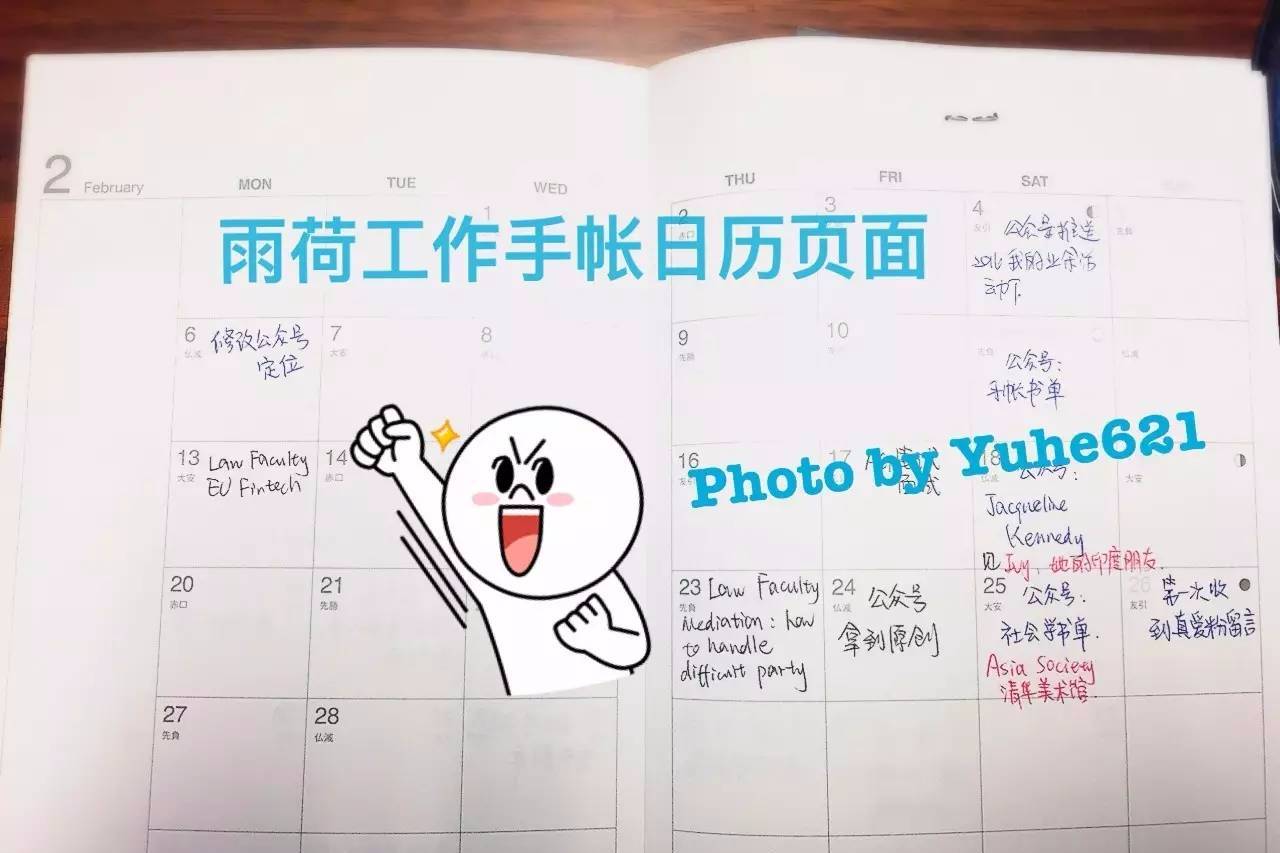 2 February MON TUE WED THU FRI SAT
雨荷工作手帐日历页面
1 2 3 4
赤口 友引 先負
公众号推送
2016我的业余活
动下
6 7 8 9 10
仏滅 大安 赤口 先勝 友引 先負 仏滅
修改公众号
定位
公众号:
手帐书单
Photo by Yuhe621
13 14 16 17 18
大安 赤口 友引 仏滅 大安
Law Faculty
EU Fintech
面试
公众号:
Jacqueline
Kennedy
见Ivy,她的印度朋友.
20 21 23 24 25 26
赤口 先勝 先負 仏滅 大安 友引
Law Faculty
Mediation: how
to handle
difficult party
公众号
拿到原创
公众号:
社会学书单.
Asia Society
清华美术馆.
第一次收
到真爱粉留言
27 28
先負 仏滅